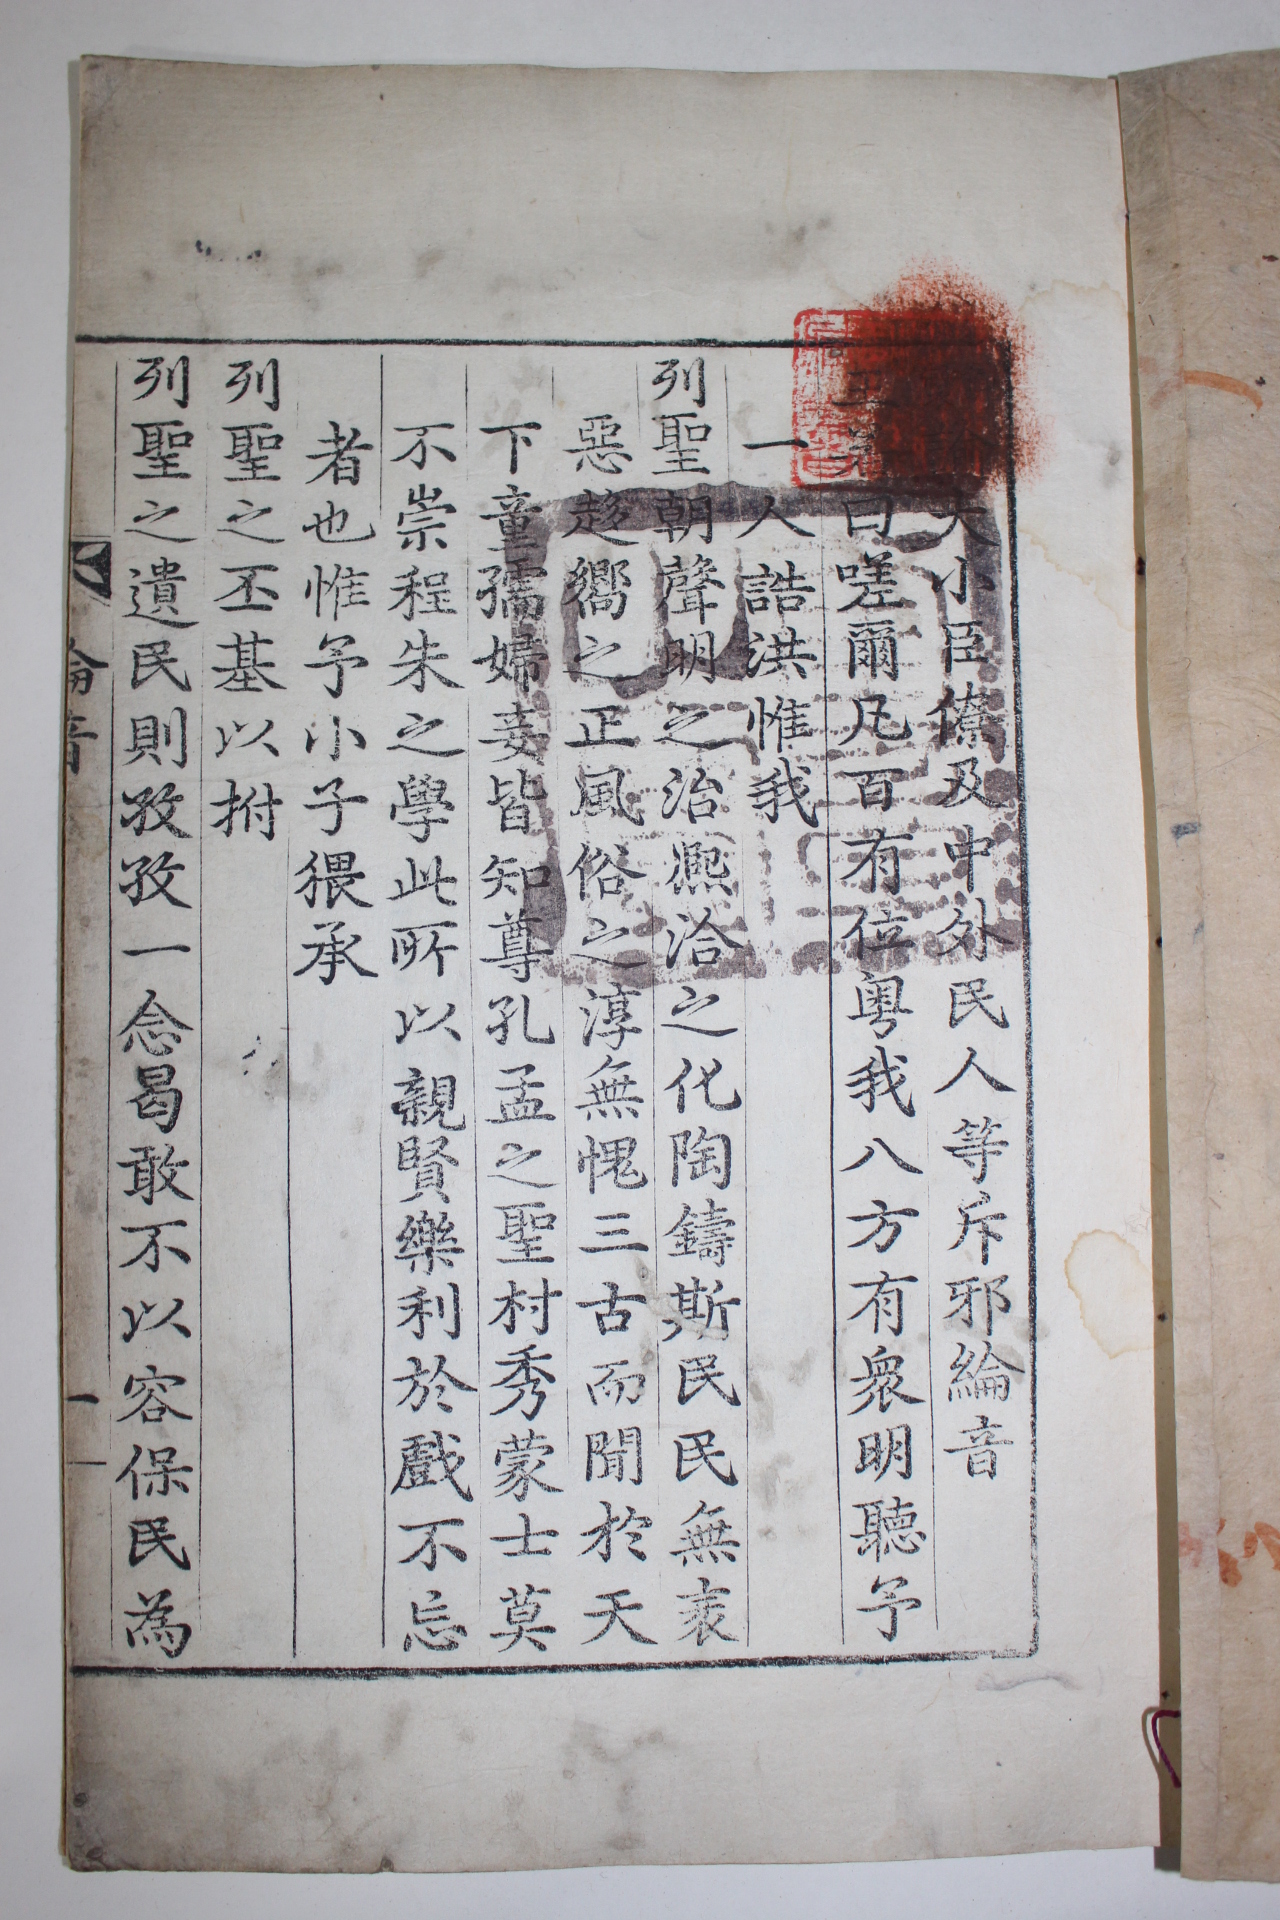 諭大小臣僚及中外民人等斥邪綸音
王若曰嗟爾凡百有位粤我八方有衆明聽予
一人誥洪惟我
列聖朝聲明之治熈洽之化陶鑄斯民民無衺
惡趍嚮之正風俗之淳無愧三古而聞於天
下童孺婦妾皆知尊孔孟之聖村秀蒙士莫
不崇程朱之學此所以親賢樂利於戲不忘
者也惟予小子猥承
列聖之丕基以拊
列聖之遺民則孜孜一念曷敢不以容保民為
綸音
一